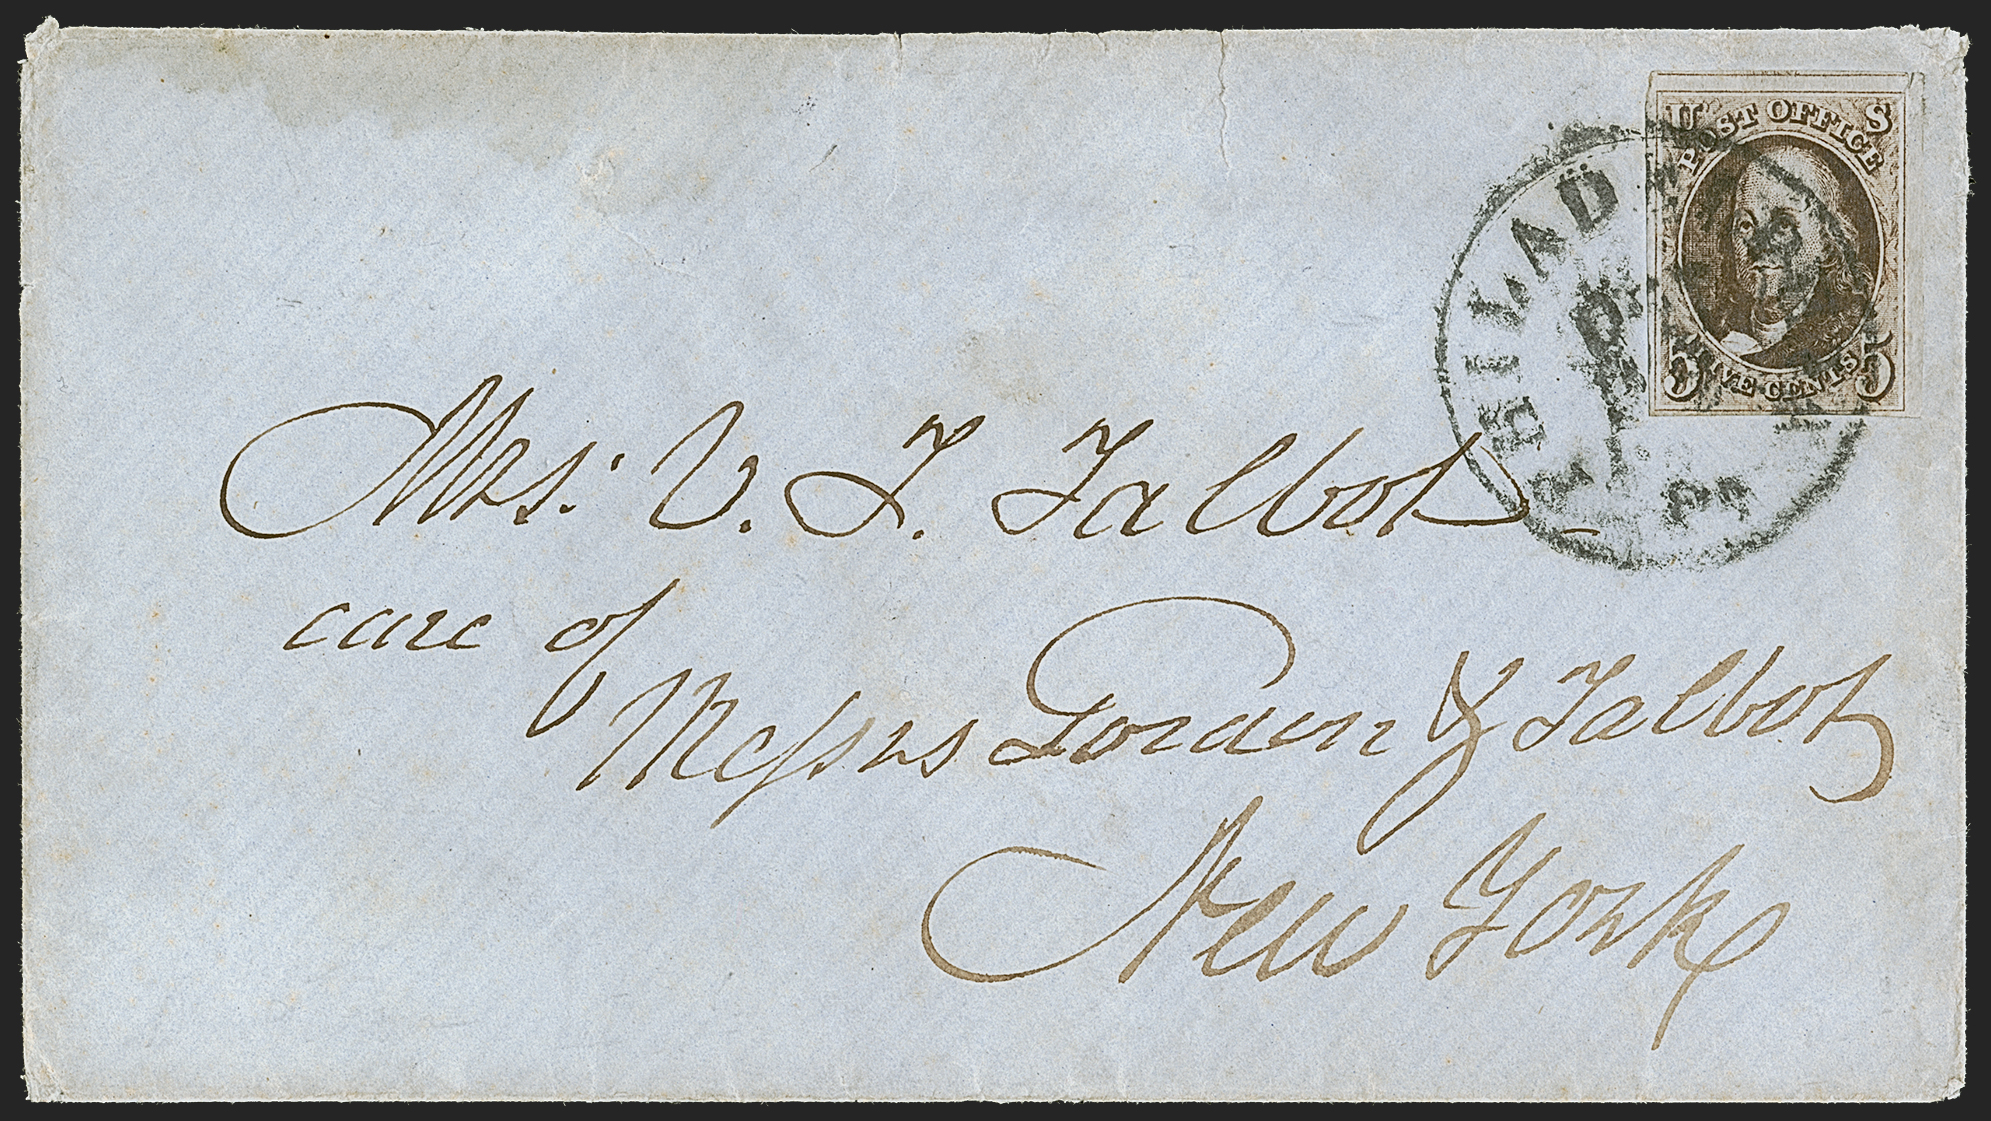 U S
POST OFFICE
FIVE CENTS
5 5
PHILAD
Pa
Mrs. V. T. Talbot
care of
Messrs Gorden & Talbot
New York